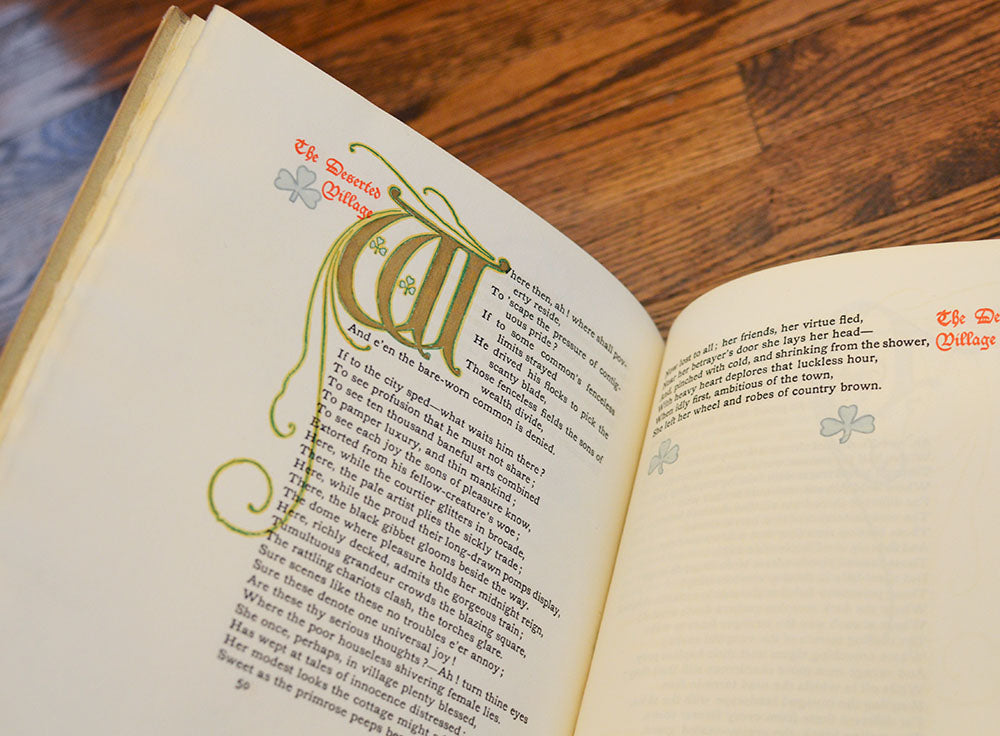 The Deserted
Village
Where then, ah! where shall pov-
erty reside,
To 'scape the pressure of contig-
uous pride?
If to some common's fenceless
limits strayed,
He drives his flocks to pick the
scanty blade,
Those fenceless fields the sons of
wealth divide,
And e'en the bare-worn common is denied.
If to the city sped—what waits him there?
To see profusion that he must not share;
To see ten thousand baneful arts combined
To pamper luxury, and thin mankind;
To see each joy the sons of pleasure know,
Extorted from his fellow-creature's woe;
Here, while the courtier glitters in brocade,
There, the pale artist plies the sickly trade;
Here, while the proud their long-drawn pomps display,
There, the black gibbet glooms beside the way.
The dome where pleasure holds her midnight reign,
Here, richly decked, admits the gorgeous train;
Tumultuous grandeur crowds the blazing square,
The rattling chariots clash, the torches glare.
Sure scenes like these no troubles e'er annoy;
Sure these denote one universal joy!
Are these thy serious thoughts?—Ah! turn thine eyes
Where the poor houseless shivering female lies.
She once, perhaps, in village plenty blessed,
Has wept at tales of innocence distressed;
Her modest looks the cottage might
Sweet as the primrose peeps
50
The De
Village
Now lost to all; her friends, her virtue fled,
Near her betrayer's door she lays her head—
And, pinched with cold, and shrinking from the shower,
With heavy heart deplores that luckless hour,
When idly first, ambitious of the town,
She left her wheel and robes of country brown.